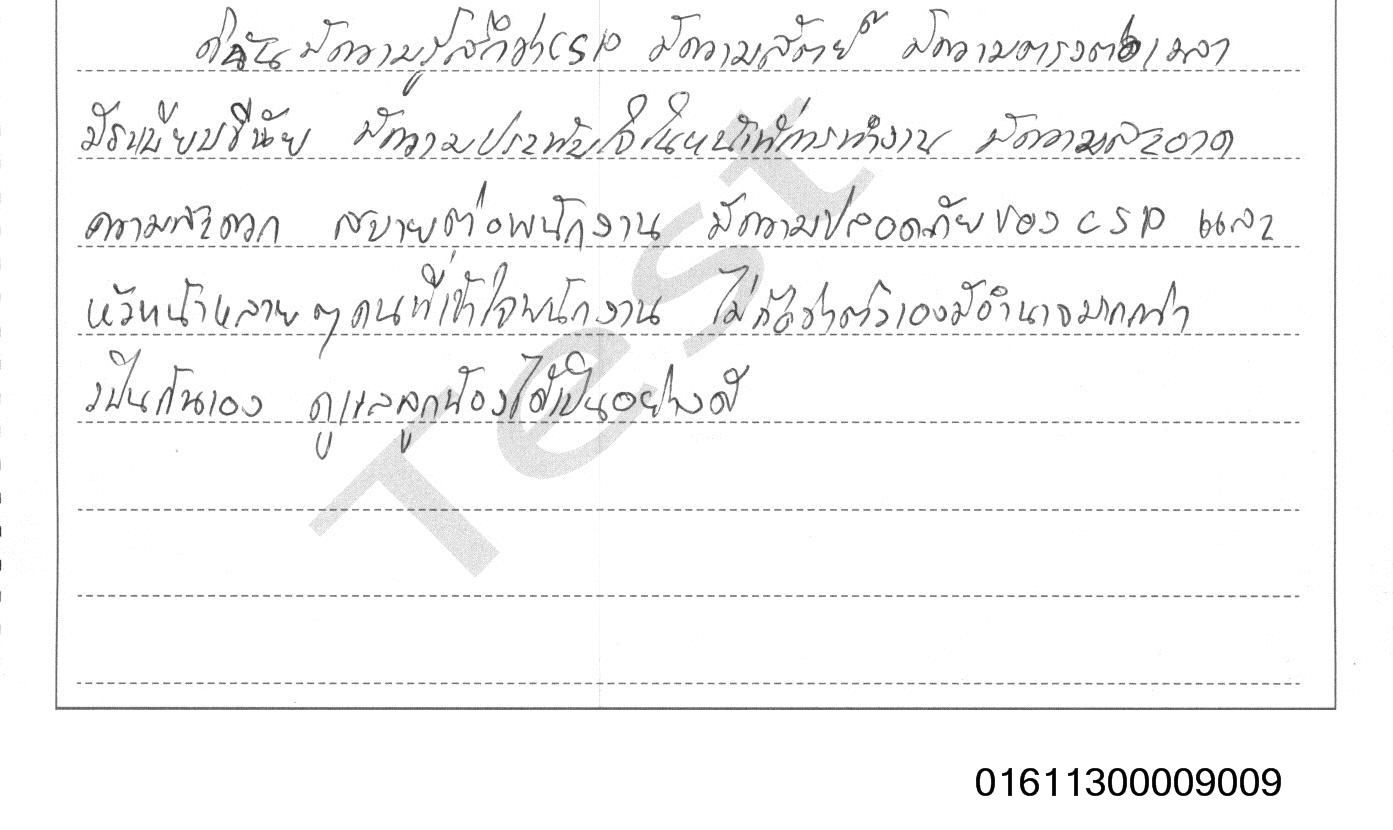 ดิฉันมีความรู้สึกว่า CSP มีความสัตย์ มีความตรงต่อเวลา
มีระเบียบวินัย มีความประทับใจในหน้าที่การทำงาน มีความสะอาด
ความสะดวก สบายต่อพนักงาน มีความปลอดภัยของ CSP และ
หัวหน้าหลายๆคนที่เข้าใจพนักงาน ไม่ถือว่าตัวเองมีอำนาจมากกว่า
เป็นกันเอง ดูแลลูกน้องได้เป็นอย่างดี
Test
01611300009009